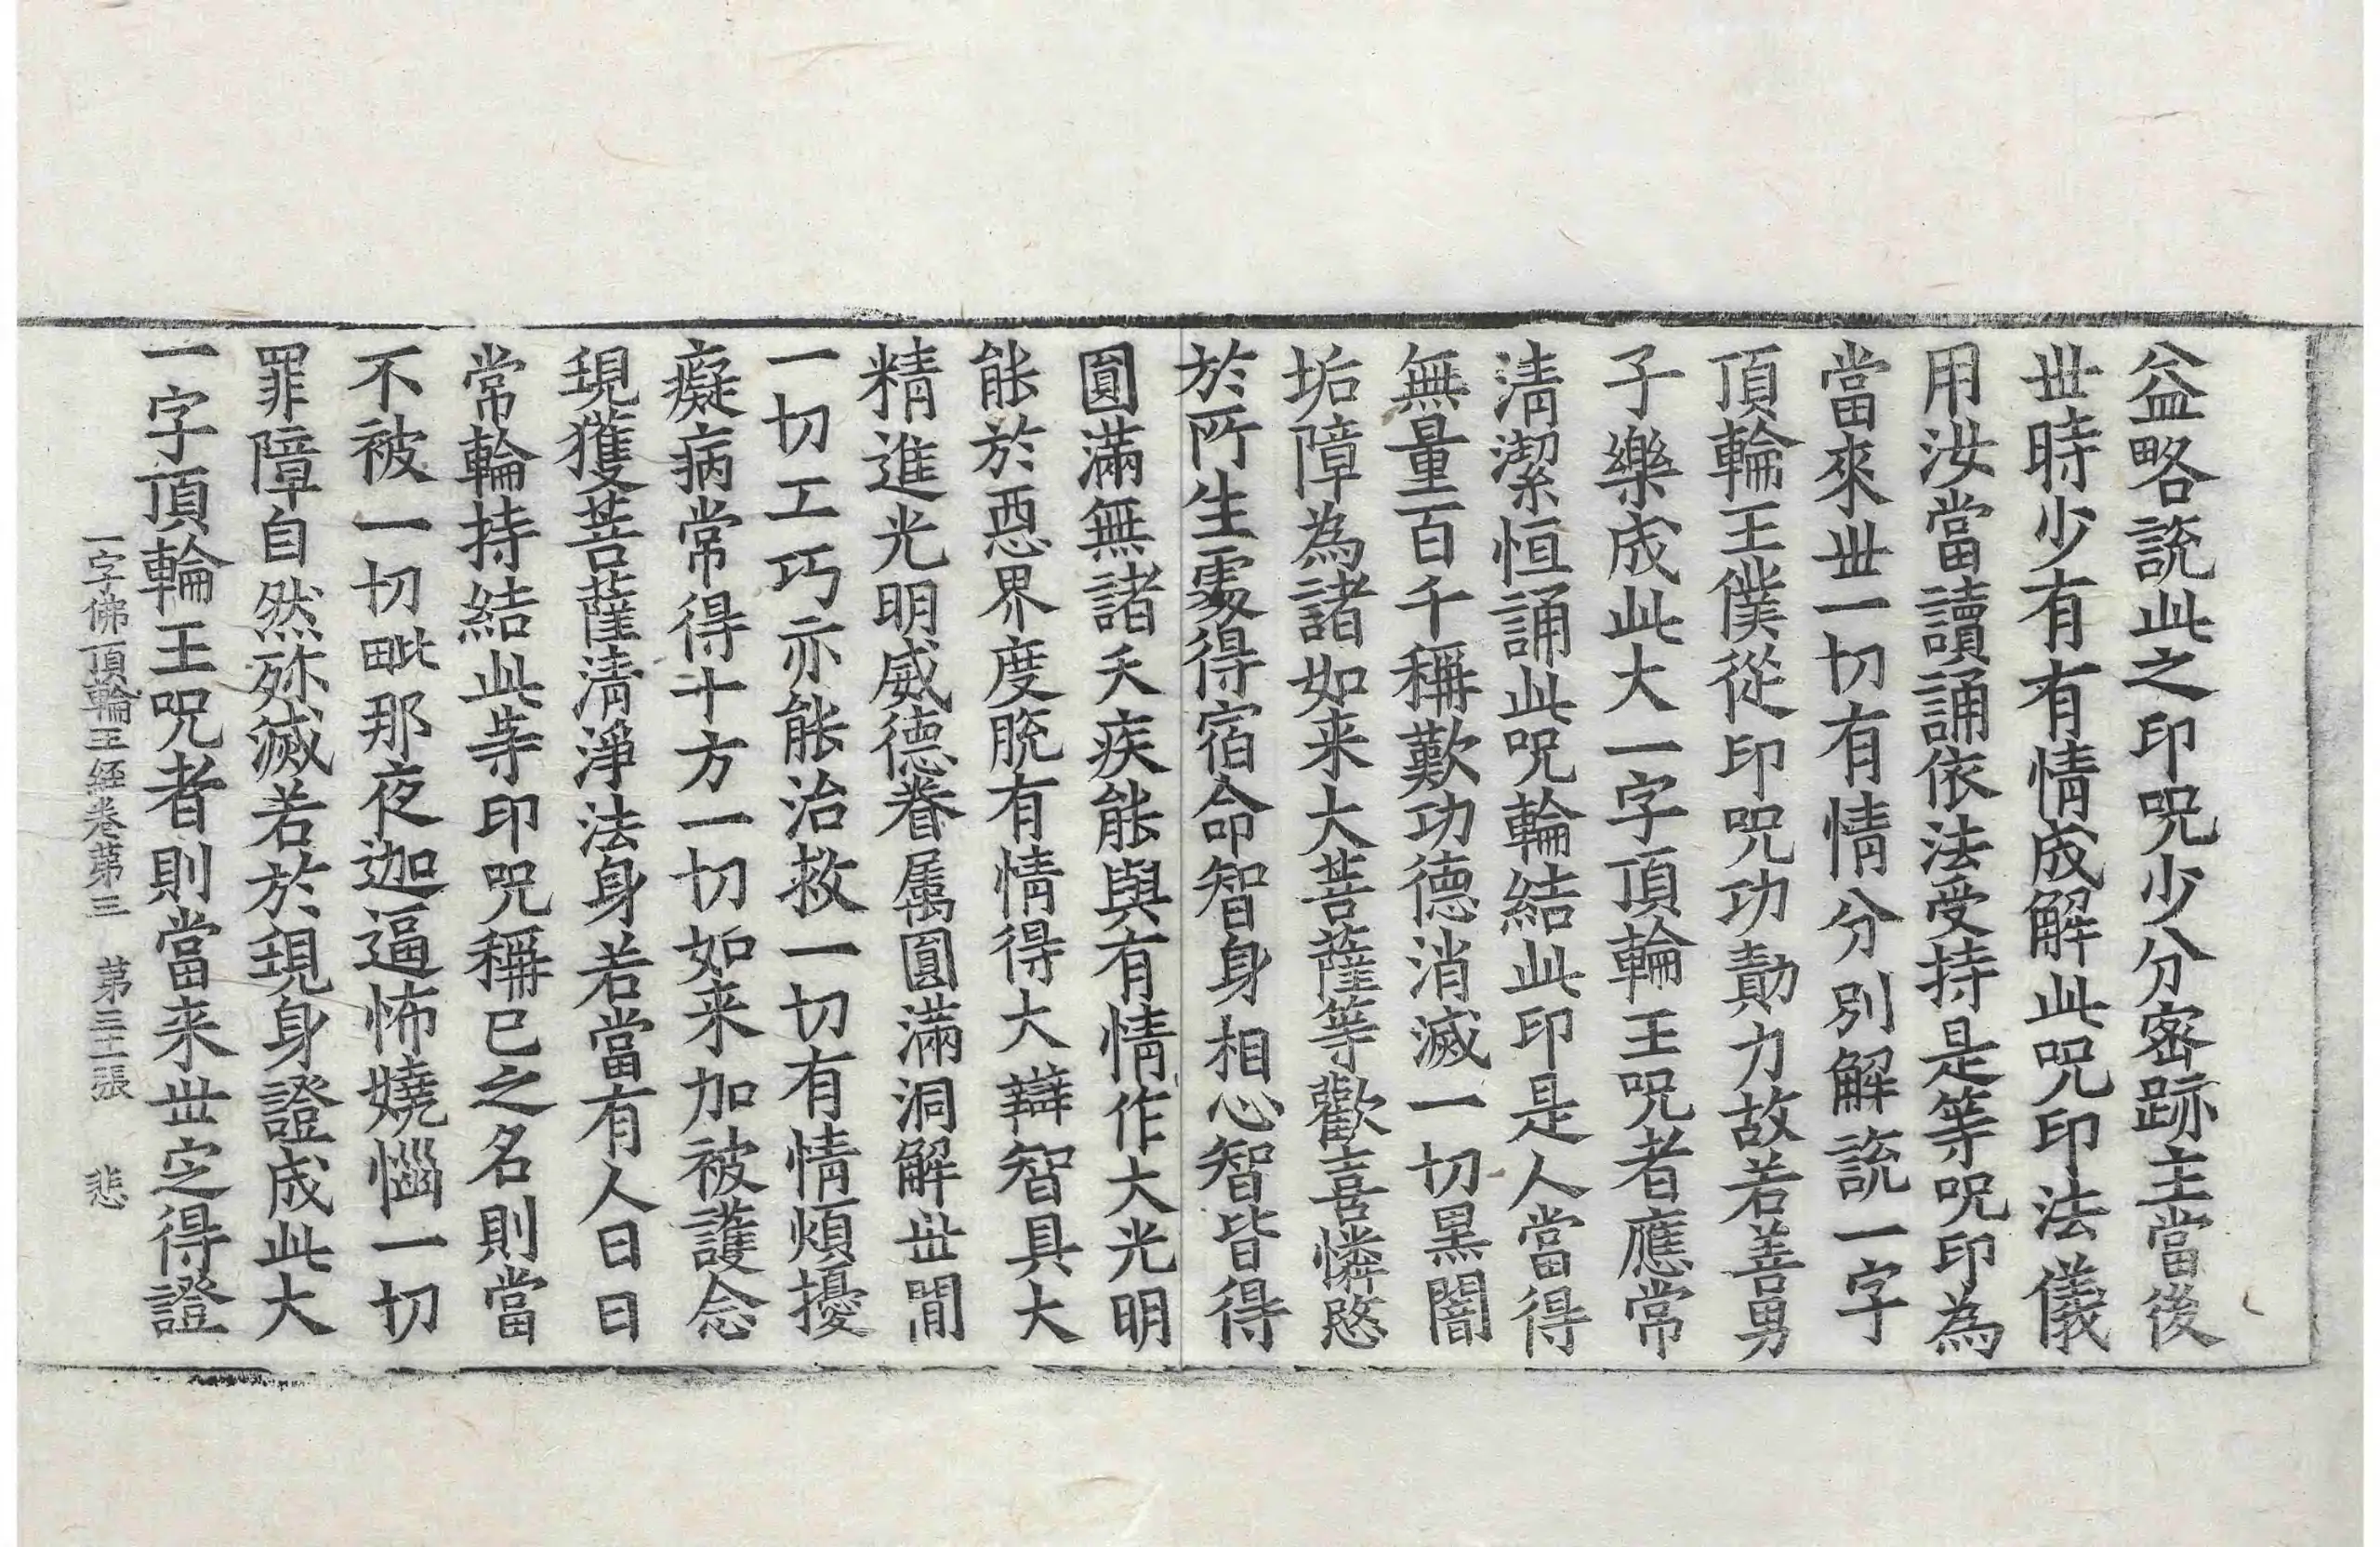 益略說此之印呪少分密跡主當後
世時少有有情成解此呪印法儀
用汝當讀誦依法受持是等呪印為
當來世一切有情分別解說一字
頂輪王僕從印呪功勣力故若善男
子樂成此大一字頂輪王呪者應常
清潔恒誦此呪輪結此印是人當得
無量百千稱歎功德消滅一切黑闇
垢障為諸如来大菩薩等歡喜憐愍
於所生處得宿命智身相心智皆得
圓滿無諸夭疾能與有情作大光明
能於惡界度脫有情得大辯智具大
精進光明威德眷属圓滿洞解世間
一切工巧亦能治救一切有情煩擾
癡病常得十方一切如来加被護念
現獲菩薩清淨法身若當有人日日
常輪持結此等印呪稱已之名則當
不被一切毗那夜迦逼怖嬈惱一切
罪障自然殄滅若於現身證成此大
一字頂輪王呪者則當来世定得證
一字佛頂輪王経卷苐三 苐三二張 悲